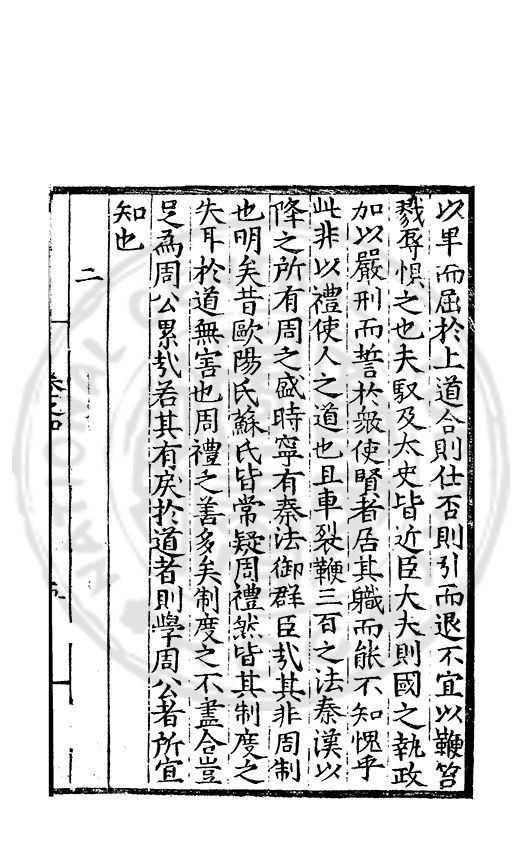 以卑而屈於上道合則仕否則引而退不宜以鞭笞
戮辱懼之也夫馭及太史皆近臣大夫則國之執政
加以嚴刑而誓於衆使賢者居其職而能不知愧乎
此非以禮使人之道也且車裂鞭三百之法秦漢以
降之所有周之盛時寧有秦法御群臣㢤其非周制
也明矣昔歐陽氏蘇氏皆常疑周禮然皆其制度之
失耳於道無害也周禮之善多矣制度之不盡合豈
足為周公累㢤若其有戾於道者則學周公者所宜
知也
二